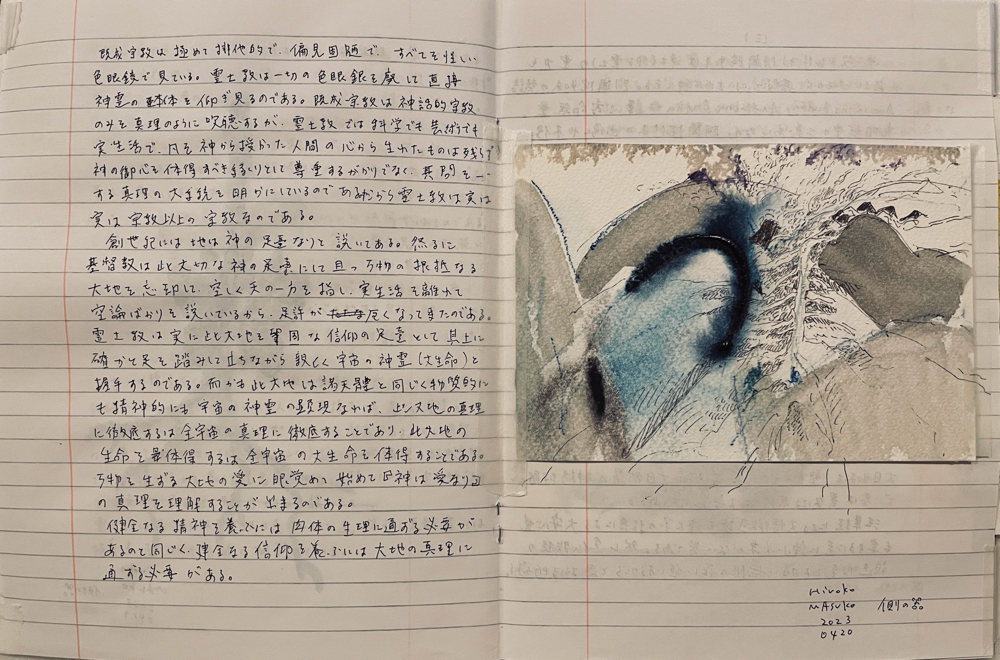 既成宗教は極めて排他的で、偏見固陋で、すべてを怪しい
色眼鏡で見ている。霊土教は一切の色眼鏡を廃して直接
神霊の本体を仰ぎ見るのである。既成宗教は神話的宗教
のみを真理のように吹聴するが、霊土教では科学でも芸術でも
実生活で、凡そ神から授かった人間の心から生れたものは残らず
神の御心を体得すべき縁りとして尊重するばかりでなく、其間を一
する真理の大系統を明かにしているのであるから霊土教は実は
実は宗教以上の宗教なのである。
創世記には地は神の足臺なりと説いてある。然るに
基督教は此大切な神の足臺にして且つ万物の根抵なる
大地を忘却して、空しく天の一方を指し、実生活を離れて
空論ばかりを説いているから、足許が危くなってきたのである。
霊土教は実に此大地を鞏固な信仰の足臺として其上に
確かと足を踏みして立ちながら親しく宇宙の神霊(大生命)と
握手するのである。而かも此大地は諸天体と同じく物質的に
も精神的にも宇宙の神霊の顕現なれば、此大地の真理
に徹底するは全宇宙の真理に徹底することであり、此大地の
生命を体得するは全宇宙の大生命を体得することである。
万物を生ずる大地の愛に眼覚めて始めて『神は愛なり』
の真理を理解することが出来るのである。
健全なる精神を養ふには肉体の生理に通ずる必要が
あるのと同じく、健全なる信仰を養ふには大地の真理に
通ずる必要がある。
Hiroko
MAsuko 側の器
2023
0420